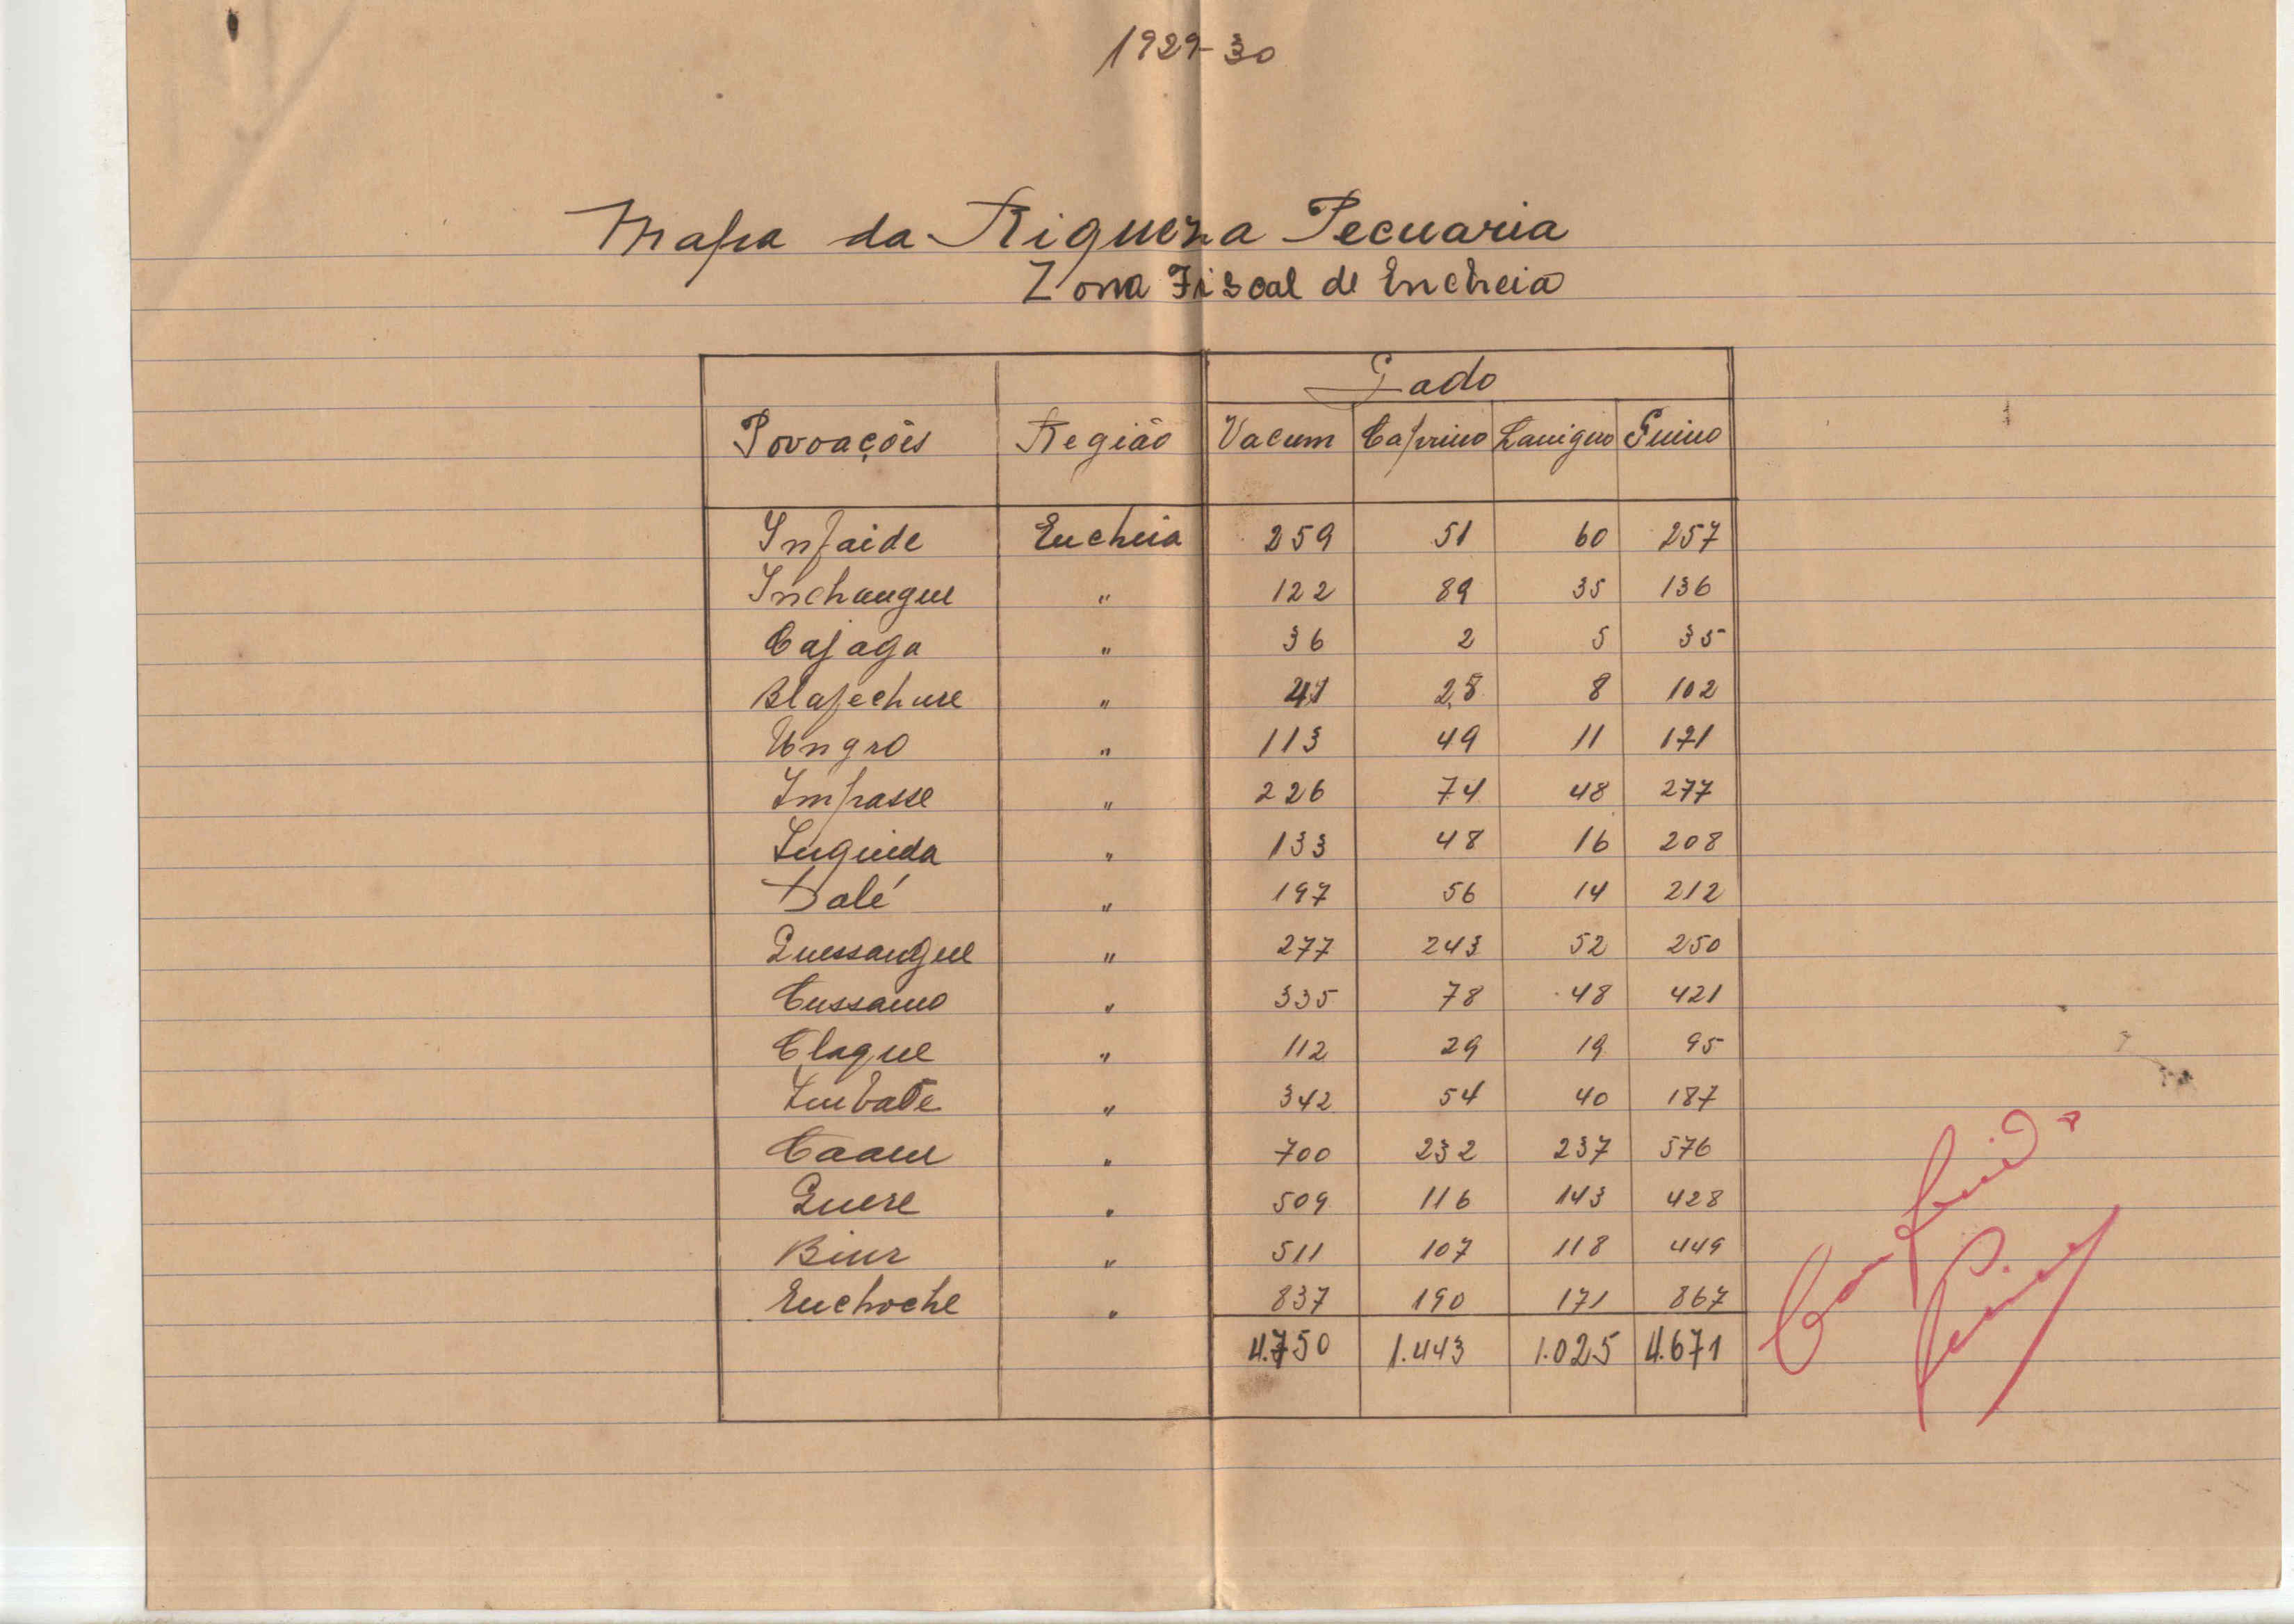 1929-30
Mapa da Riqueza Pecuaria
Zona Fiscal de Encheia
Gado
Povoações Região Vacum Caprino Lanigero Suino
Infaide Encheia 259 51 60 257
Inchangue " 122 89 35 136
Cajaga " 36 2 5 35
Blafechure " 41 25 8 102
Ungro " 113 49 11 171
Impasse " 226 74 48 277
Inguida " 133 48 16 208
Dalé " 197 56 14 212
Quessangue " 277 243 52 250
Cussano " 335 78 48 421
Claque " 112 29 19 95
Imbate " 342 54 40 187
Caaen " 700 232 237 576
Quere " 509 116 143 428
Binr " 511 107 118 449
Enchoche " 837 190 171 867
4.750 1.443 1.025 4.671